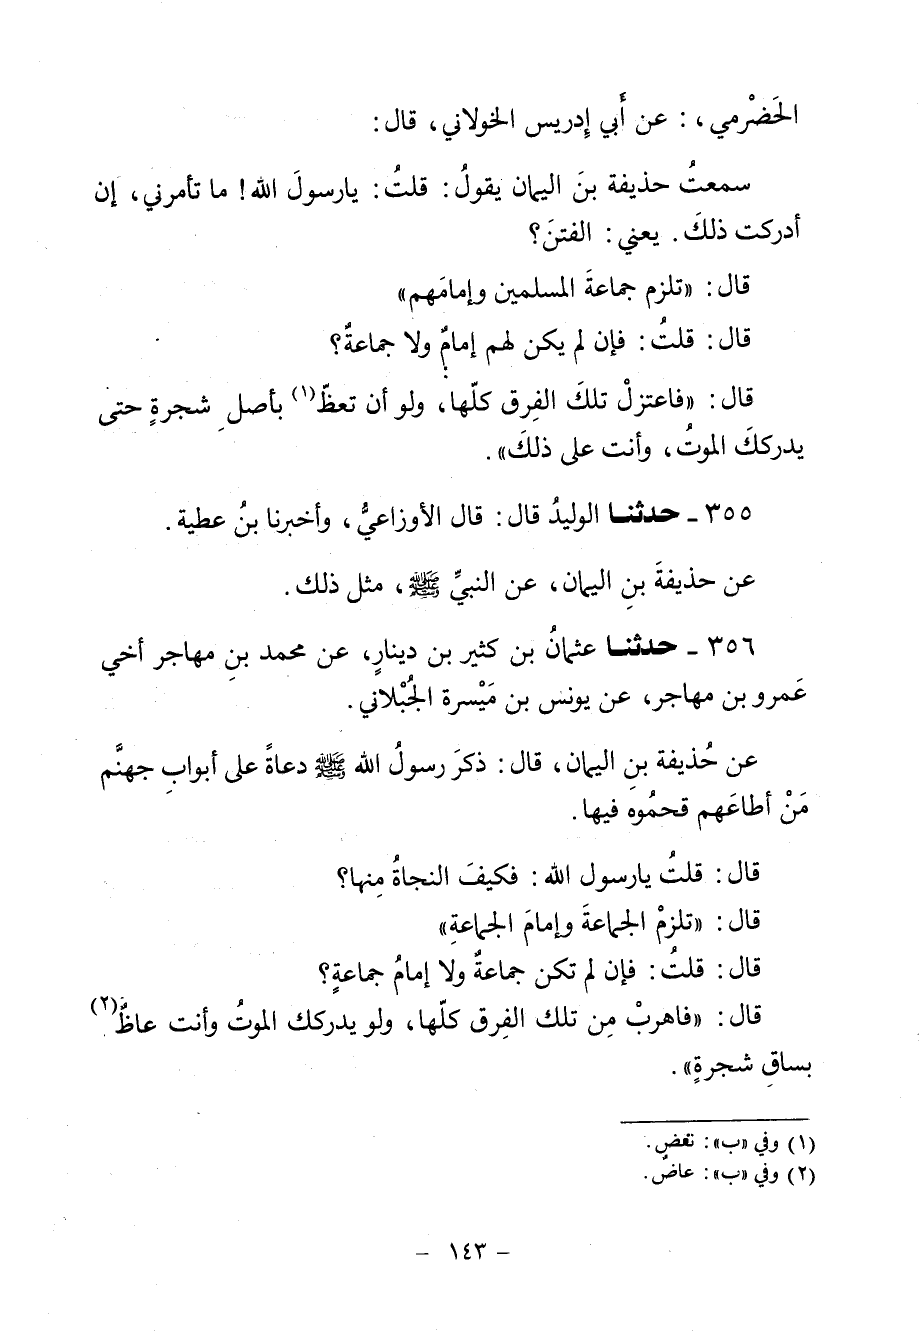 الحَضْرمي، : عن أَبي إدريس الخولاني، قال:
سمعتُ حذيفة بنَ اليمان يقولُ: قلتُ: يارسولَ الله! ما تأمرني، إن
أدركت ذلكَ. يعني: الفتنَ؟
قال: «تلزم جماعةَ المسلمين وإمامَهم»
قال: قلتُ: فإن لم يكن لهم إمامٌ ولا جماعةٌ؟
قال: «فاعتزلْ تلكَ الفِرق كلّها، ولو أن تعظّ(١) بأصلِ شجرةٍ حتى
يدرككَ الموتُ، وأنت على ذلكَ».
٣٥٥ ـ حدثنا الوليدُ قال: قال الأوزاعيُّ، وأخبرنا بنُ عطية.
عن حذيفةَ بنِ اليمان، عن النبيِّ ﷺ، مثل ذلك.
٣٥٦ ـ حدثنا عثمانُ بن كثير بن دينارٍ، عن محمد بنِ مهاجر أخي
عَمرو بن مهاجر، عن يونس بن مَيْسرة الجُبْلاني.
عن حُذيفة بنِ اليمان، قال: ذكرَ رسولُ الله ﷺ دعاةً على أبوابِ جهنَّم
مَنْ أطاعَهم قحمُوه فيها.
قال: قلتُ يارسول الله: فكيفَ النجاةُ مِنها؟
قال: «تلزمْ الجماعةَ وإمامَ الجماعةِ»
قال: قلتُ: فإن لم تكن جماعةٌ ولا إمامُ جماعةٍ؟
قال: «فاهربْ مِن تلك الفِرق كلّها، ولو يدركك الموتُ وأنت عاظٌّ(٢)
بساقِ شجرةٍ».
(١) وفي «ب»: تغض.
(٢) وفي «ب»: عاضّ.
- ١٤٣ -